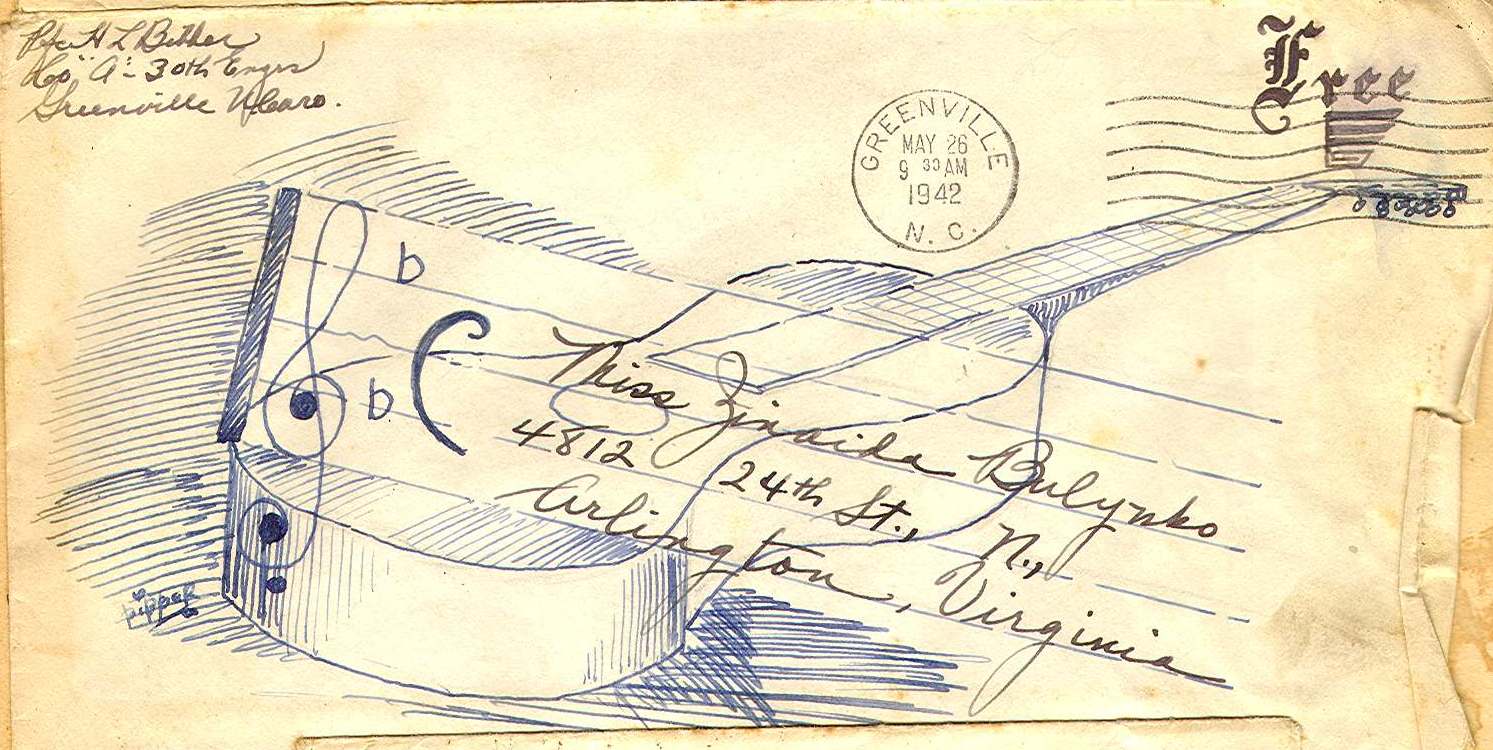 Pfc H L Bither
Co "A" - 30th Engrs
Greenville N. Caro.
Free
GREENVILLE
MAY 26
9 30 AM
1942
N. C.
Miss Zinaida Bulynko
4812 24th St., N.,
Arlington, Virginia